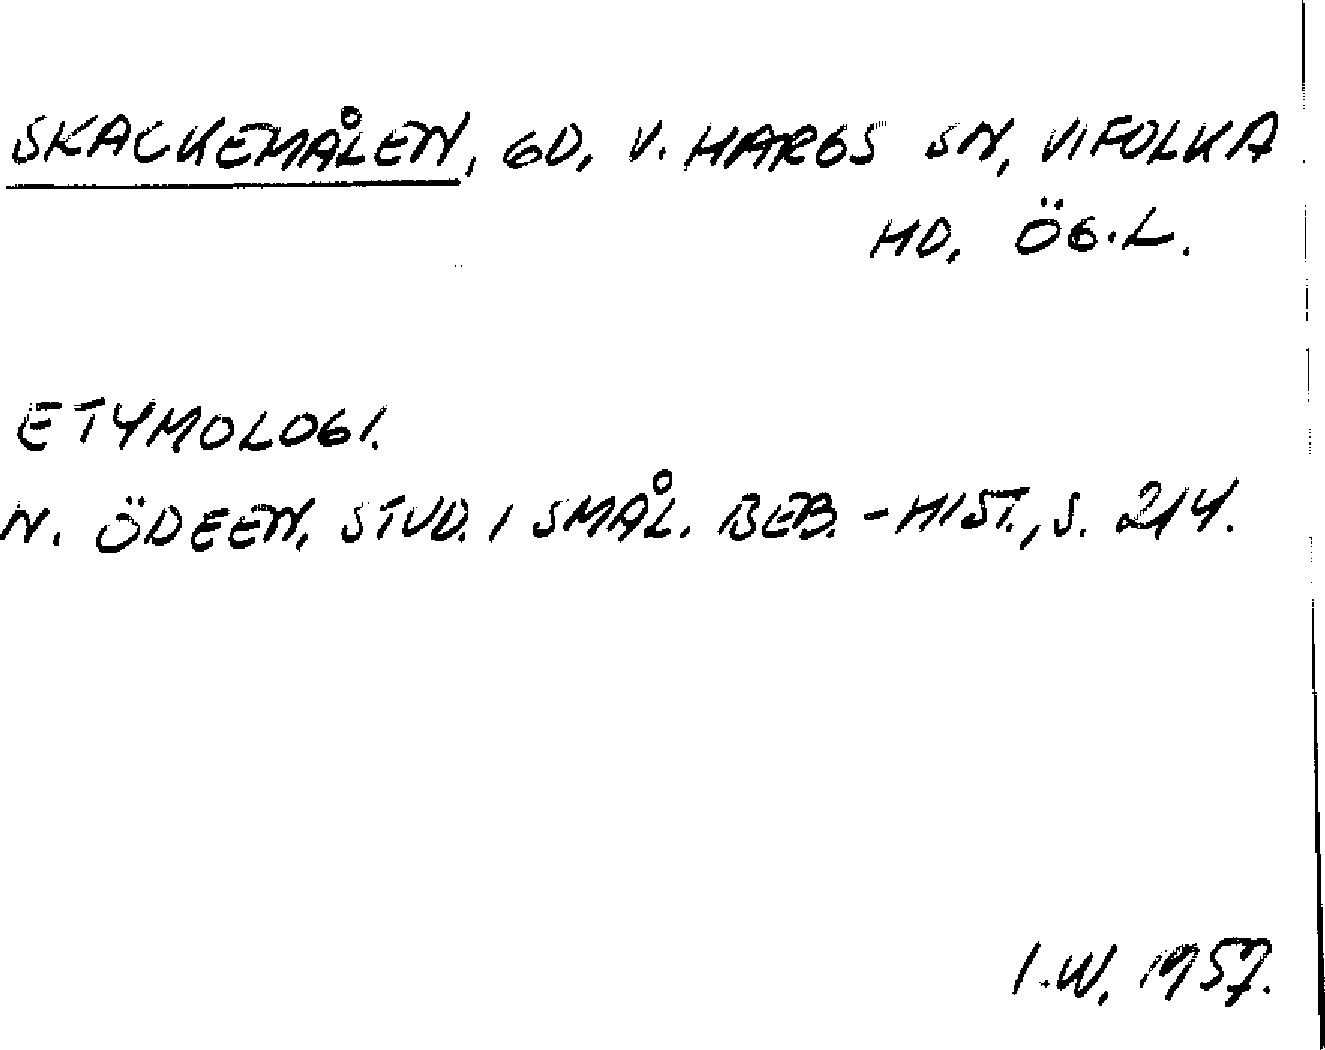 SKACKEMÅLEN, GD, V. HARGS SN, VIFOLKA
HD, ÖG.L.
ETYMOLOGI.
N. ÖDEEN, STUD. I SMÅL. BEB.-HIST., S. 214.
I.W, 1957.